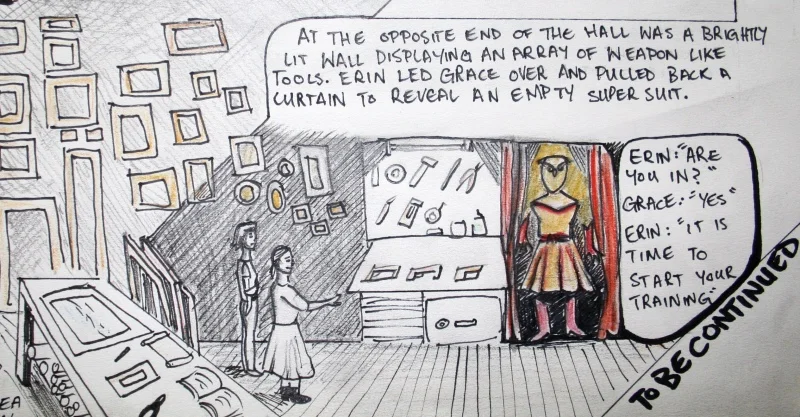 AT THE OPPOSITE END OF THE HALL WAS A BRIGHTLY
LIT WALL DISPLAYING AN ARRAY OF WEAPON LIKE
TOOLS. ERIN LED GRACE OVER AND PULLED BACK A
CURTAIN TO REVEAL AN EMPTY SUPER SUIT.
ERIN: "ARE
YOU IN?"
GRACE: "YES"
ERIN: "IT IS
TIME TO
START YOUR
TRAINING"
TO BE CONTINUED